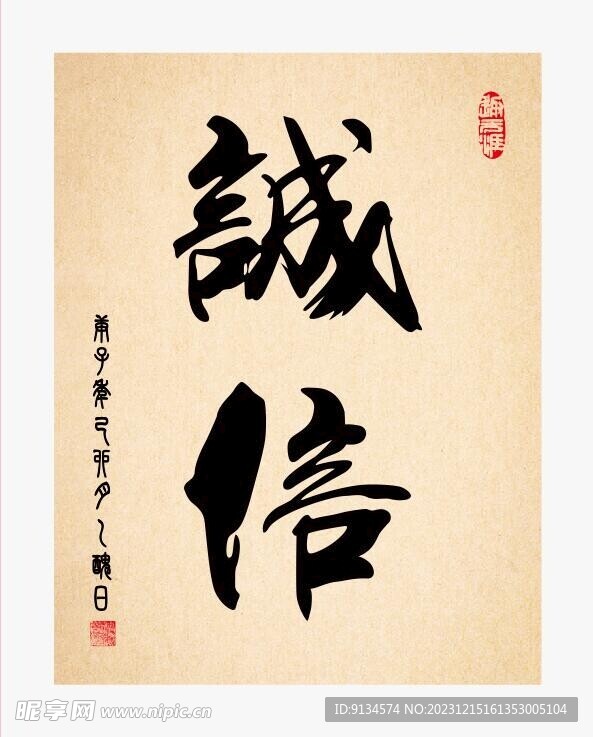 誠信
庚子年己卯月乁醜日
昵享网 www.nipic.cn
ID:9134574 NO:20231215161353005104